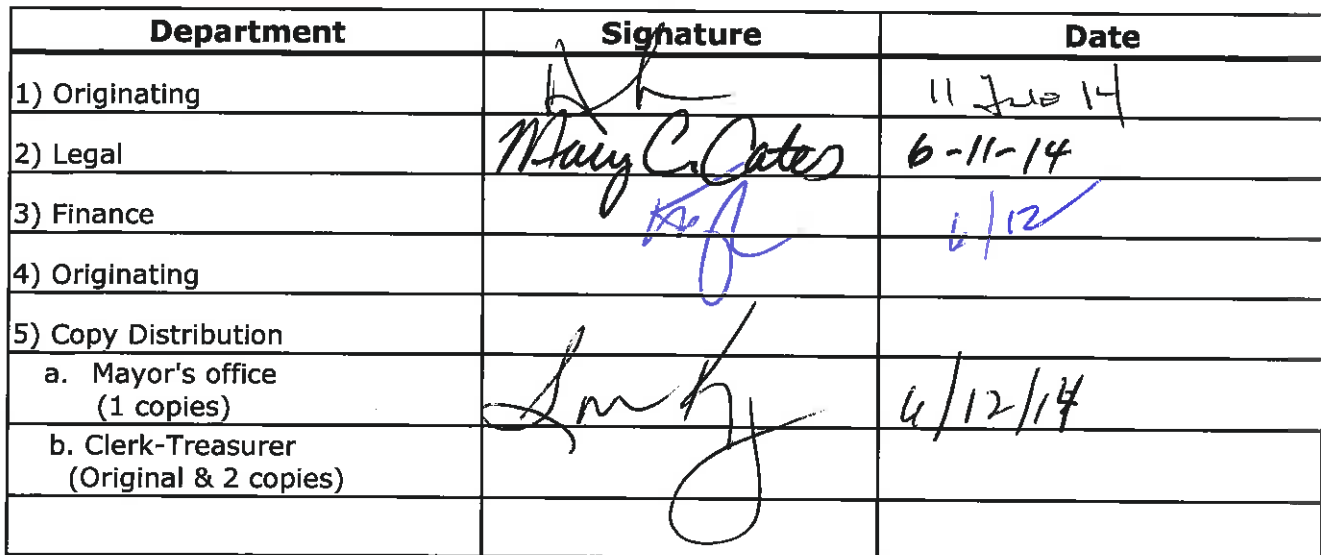 Department Signature Date
1) Originating 11 14
2) Legal Mary C. Cates 6-11-14
3) Finance 6/12
4) Originating
5) Copy Distribution
a. Mayor's office
(1 copies) 6/12/14
b. Clerk-Treasurer
(Original & 2 copies)